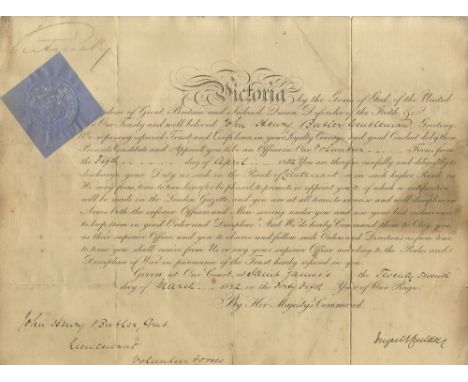 Victoria by the Grace of God, of the United
Kingdom of Great Britain and Ireland Queen, Defender of the Faith, &c.
To Our Trusty and well beloved John Henry Butler Gentleman Greeting
We reposing especial Trust and Confidence in your Loyalty Courage, and good Conduct do by these
Presents Constitute and Appoint you to be an Officer in Our Volunteer Forces from
the Fifth day of April 1882 You are therefore carefully and diligently to
discharge your Duty as such in the Rank of Lieutenant or in such higher Rank as
We may from time to time hereafter be pleased to promote or appoint you to, of which a notification
will be made in the London Gazette and you are at all times to exercise and well discipline in
Arms both the inferior Officers and Men serving under you and use your best endeavours
to keep them in good Order and Discipline. And We do hereby Command them to Obey you
as their superior Officer and you to observe and follow such Orders and Directions as from time
to time you shall receive from Us or any your superior Officer according to the Rules and
Discipline of War in pursuance of the Trust hereby reposed in you.
Given at Our Court, at Saint James's the Twenty Second
day of March 1882 in the Forty Fifth Year of Our Reign.
By Her Majesty's Command.
John Henry Butler, Gent
Lieutenant
Volunteer Forces